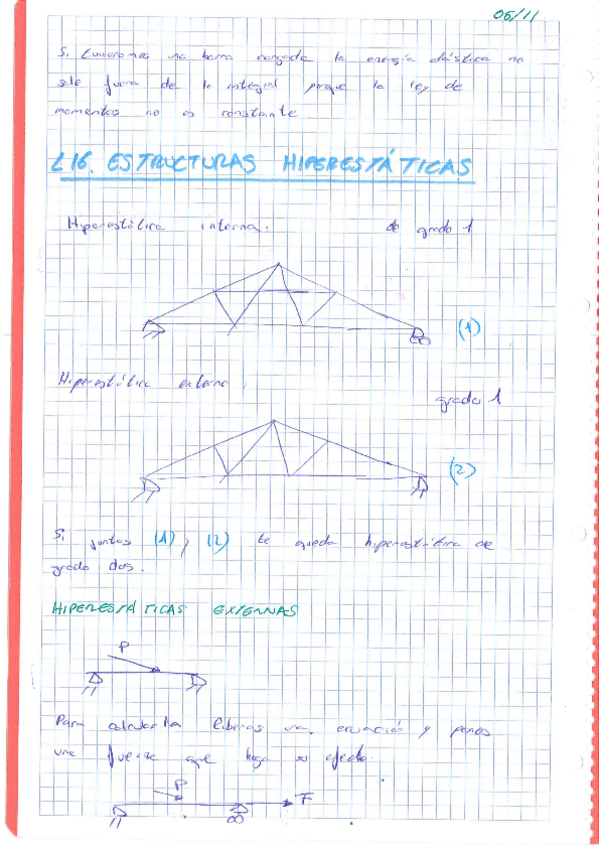 06/11
Si tuvieramos una barra cargada la energía elástica no
sale fuera de la integral porque la ley de
momentos no es constante
L16. ESTRUCTURAS HIPERESTÁTICAS
Hiperestática interna. de grado 1
(1)
Hiperestática externa. grado 1
(2)
Si juntas (1) y (2) te queda hiperestática de
grado dos.
HIPERESTÁTICAS EXTERNAS
P
Para calcularla liberas una ecuación y pones
una fuerza que haga su efecto.
P F